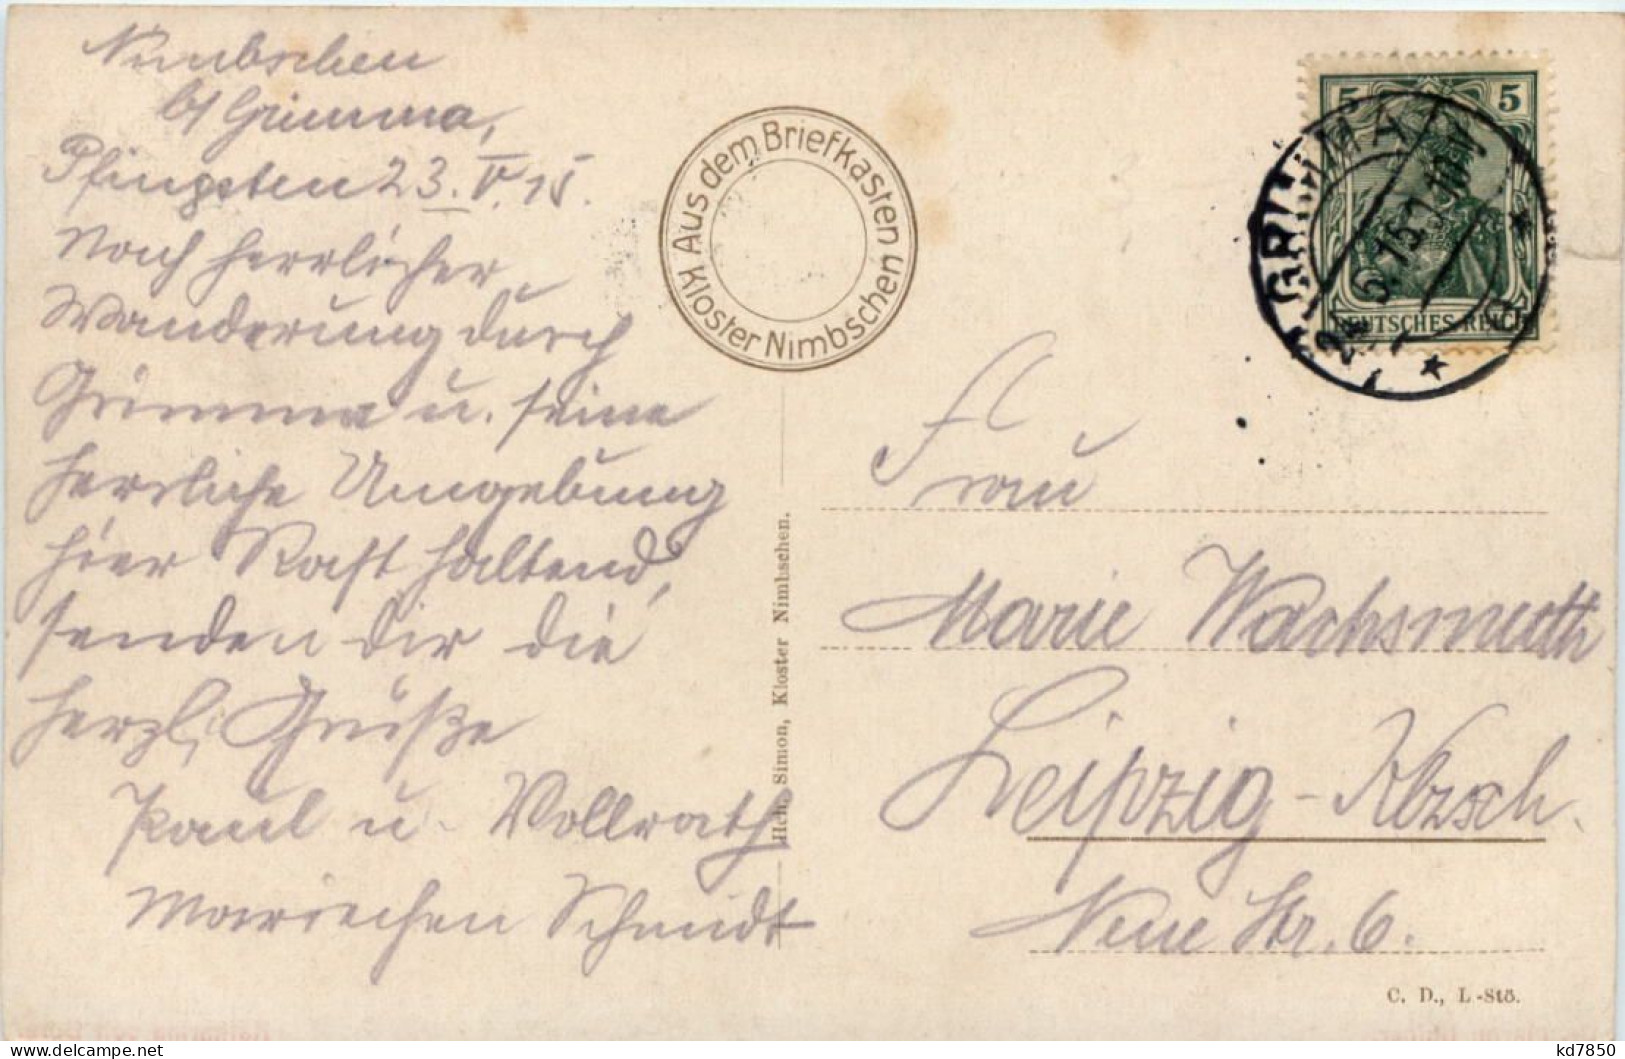 Nimbschen
b/ Grimma,
Pfingsten 23. V. 15.
Nach herrlicher
Wanderung durch
Grimma u. seine
herrliche Umgebung
hier Rast haltend,
senden dir die
herzl. Grüße
Paul u. Vollrath
Mariechen Schmidt
Aus dem Briefkasten
Kloster Nimbschen
Hch. Simon, Kloster Nimbschen.
5 5
DEUTSCHES REICH
GRIMMA
Frau
Marie Wachsmuth
Leipzig-Klzsch.
Neue Str. 6.
C. D., L.-Stö.
kd7850